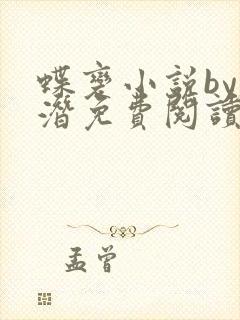 蝶褒小说by
潛免費閱讀
孟曾